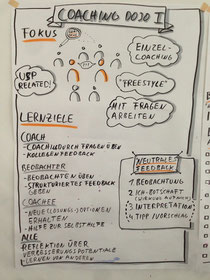 COACHING DOJO I
FOKUS
EINZEL-
COACHING
USP
RELATED!
"FREESTYLE"
MIT FRAGEN
ARBEITEN
LERNZIELE
COACH
- COACHING DURCH FRAGEN ÜBEN
- KOLLEGENFEEDBACK
BEOBACHTER
- BEOBACHTEN ÜBEN
- STRUKTURIERTES FEEDBACK
GEBEN
COACHEE
- NEUE LÖSUNGSOPTIONEN
ERHALTEN
- HILFE ZUR SELBSTHILFE
ALLE
REFLEKTION ÜBER
VERBESSERUNGSPOTENTIALE
LERNEN VON ANDEREN
NEUTRALES
FEEDBACK
1. BEOBACHTUNG
2. ICH-BOTSCHAFT
3. INTERPRETATION
4. TIPP / VORSCHLAG